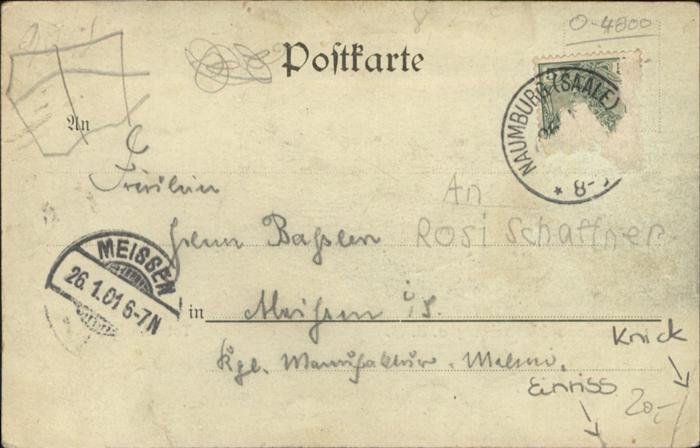 O-4800
Postkarte
NAUMBURG (SAALE)
* 8-
An
Fräulein
An
Rosi Schaffner
MEISSEN
26.1.01 6-7N
in Meißen i/S.
Kgl. Manufaktur.
Knick
Einriss
20,-